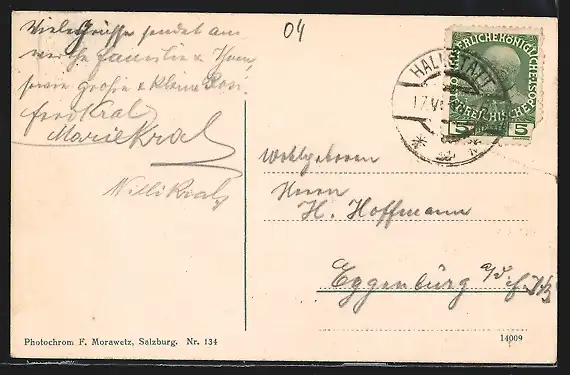 Viele Grüsse sendet am
werthe Familie & Ihnen
sowie große & kleine
Ferd Kral
Marie Kral
Willi Kral
04
HALLSTATT
17 VI
KAISERLICHE KÖNIGLICHE ÖSTERREICHISCHE POST
5 5
Wohlgeboren
Herrn
H. Hoffmann
Eggenburg a/d. f. J. B.
Photochrom F. Morawetz, Salzburg. Nr. 134
14009